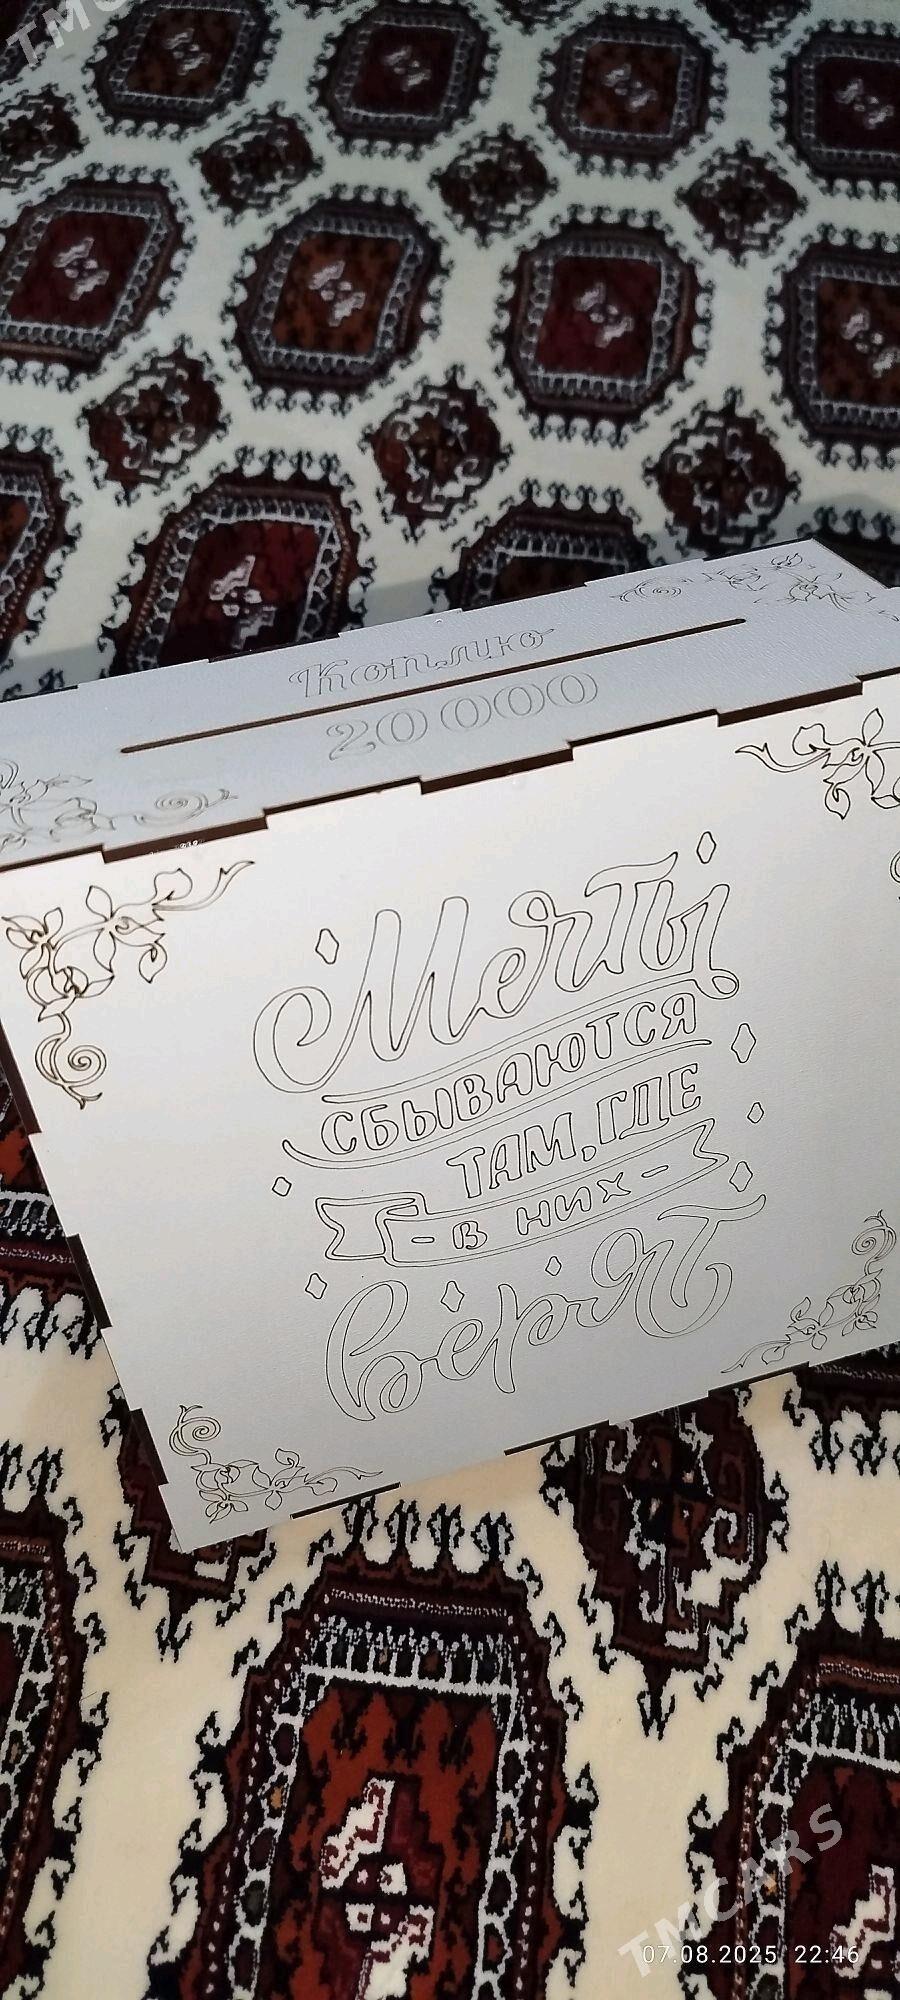 TMCARS
Коплю
20 000
Мечты
СБЫВАЮТСЯ
ТАМ, ГДЕ
- В НИХ -
верят
TMCARS
07.08.2025 22:46